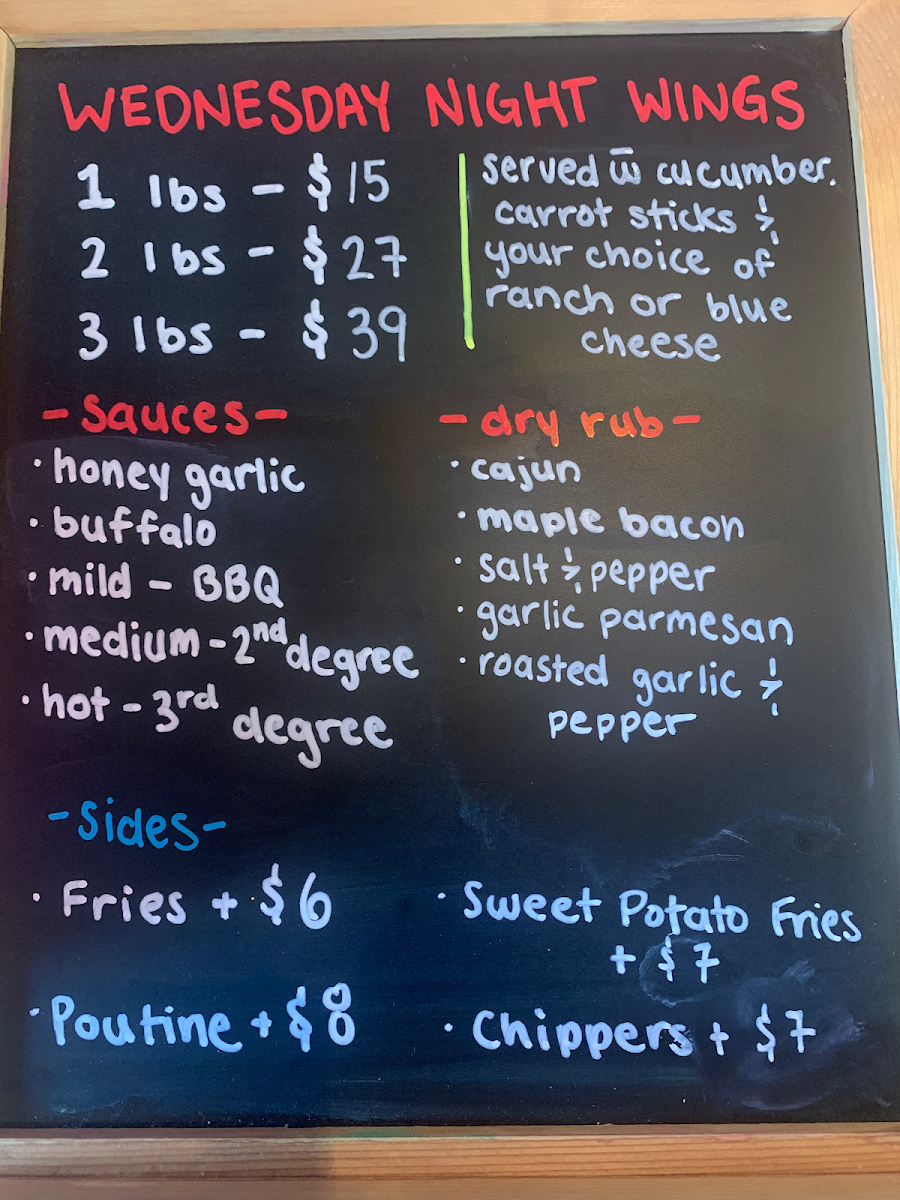 WEDNESDAY NIGHT WINGS
1 lbs - $15
2 lbs - $27
3 lbs - $39
served w̅ cucumber.
carrot sticks &
your choice of
ranch or blue
cheese
- Sauces -
· honey garlic
· buffalo
· mild - BBQ
· medium - 2nd degree
· hot - 3rd degree
- dry rub -
· cajun
· maple bacon
· salt & pepper
· garlic parmesan
· roasted garlic &
pepper
- Sides -
· Fries + $6
· Poutine + $8
· Sweet Potato Fries
+ $7
· Chippers + $7